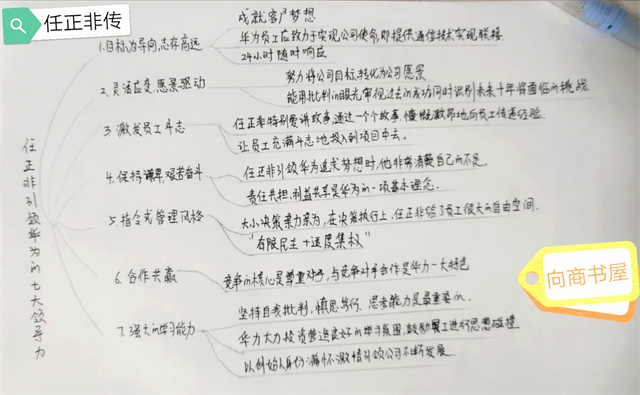 任正非传
任正非引领华为的七大领导力
1.目标为导向,志存高远
成就客户梦想
华为员工应致力于实现公司使命,即提供通信技术实现联接
24小时随时响应
2.灵活应变,愿景驱动
努力将公司目标,转化为公司愿景
能用批判的眼光审视过去的成功同时识别未来十年将面临的挑战
3.激发员工斗志
任正非特别爱讲故事,通过一个个故事,慷慨激昂地向员工传递经验
让员工充满斗志地投入到项目中去。
4.保持谦卑,艰苦奋斗
任正非引领华为追求梦想时,他非常清楚自己的不足
责任共担、利益共享是华为的一项基本理念。
5.指令式管理风格
大小决策亲力亲为,在决策执行上,任正非给了员工很大的自由空间.
“有限民主+适度集权”
6.合作共赢
竞争的核心是尊重对手,与竞争对手合作是华为一大特色
7.强大的学习能力
坚持自我批判,慎思笃行,思考能力是最重要的.
华为大力投资营造良好的学习氛围,鼓励员工进行思想碰撞
以创始人身份满怀激情引领公司不断发展.
向商书屋